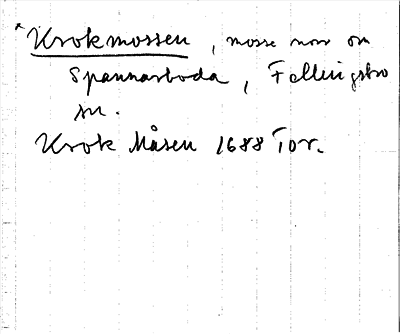 * Krokmossen, mosse norr om
Spannarboda, Fellingsbro
sn.
Krok Måsen 1688 Tor.